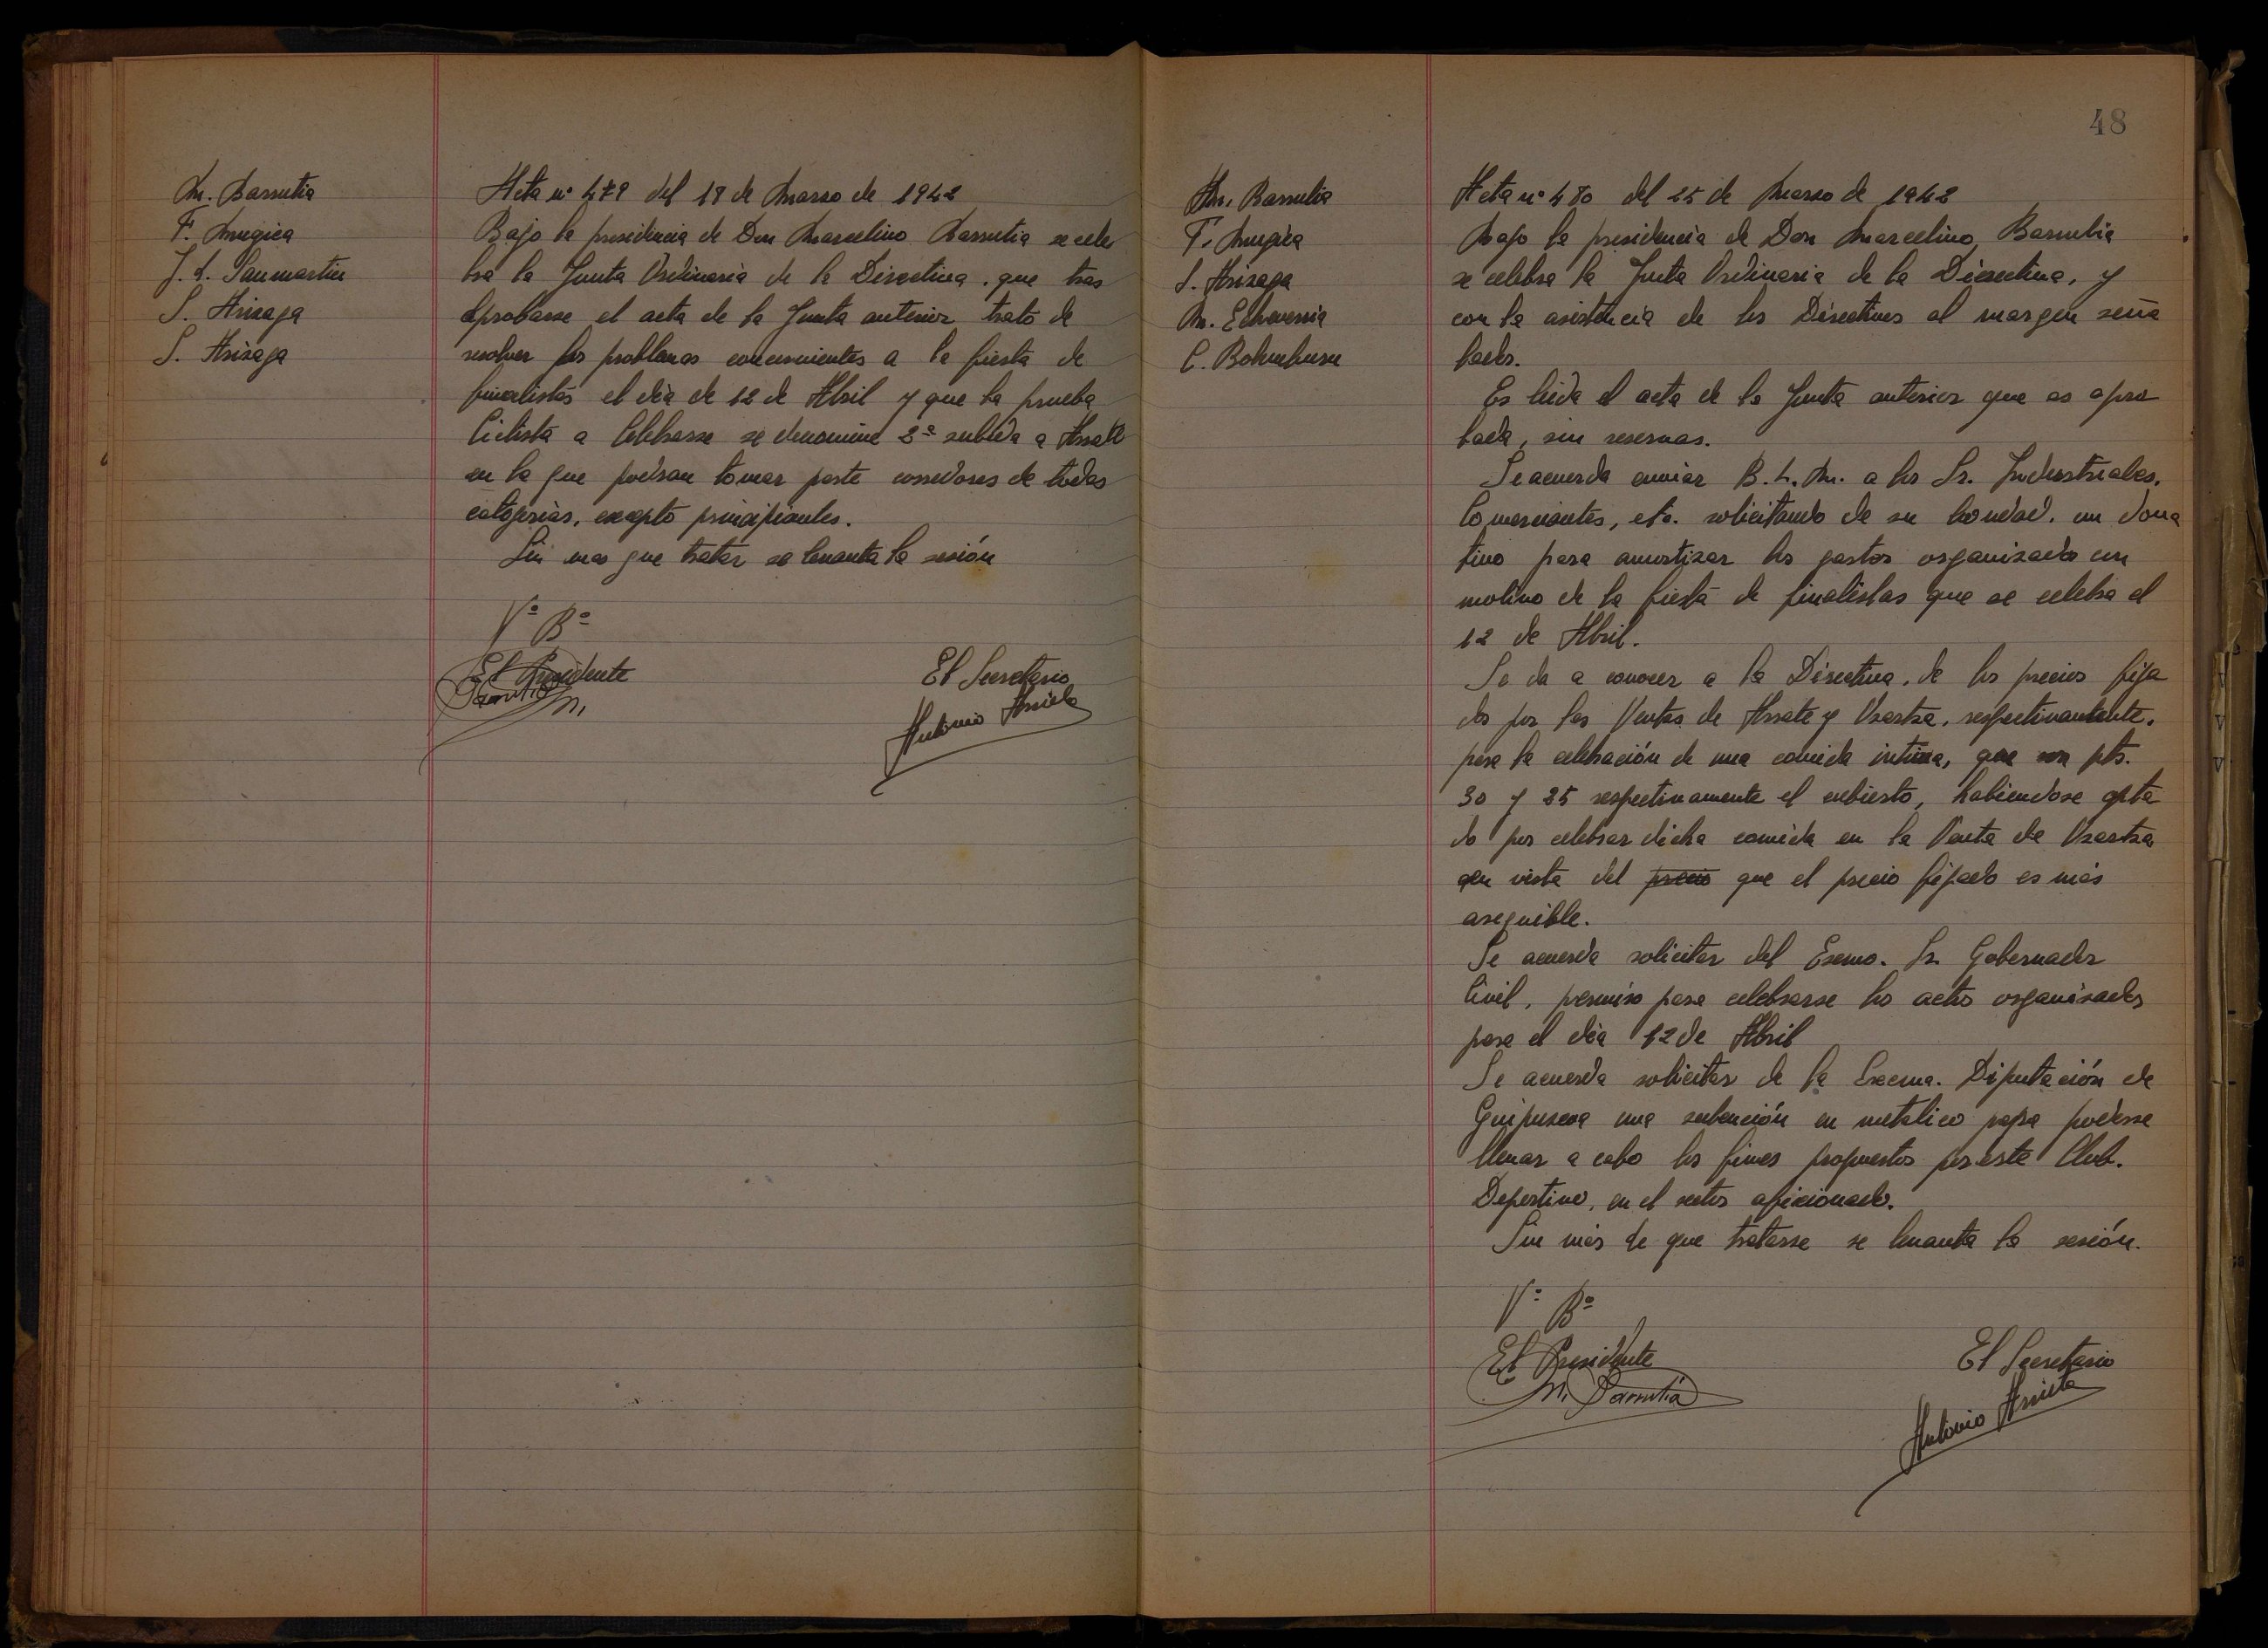 M. Barrutia
F. Mugica
J. L. Sanmartin
S. Arizaga
S. Arizaga
Acta nº 479 del 18 de Marzo de 1942
Bajo la presidencia de Don Marcelino Barrutia se cele
bra la Junta Ordinaria de la Directiva, que tras
aprobarse el acta de la Junta anterior trató de
resolver los problemas concernientes a la fiesta de
finalistas el día de 12 de Abril y que la prueba
Ciclista a Celebrarse se denomine 2ª subida a Arrate
en la que podran tomar parte corredores de todas
catogerias, excepto principiantes.
Sin mas que tratar se levanta la sesión
Vº Bº
El Presidente
Barrutia
M.
El Secretario
Antonio Arrieta
48
M. Barrutia
F. Mugica
S. Arizaga
M. Echeverria
C.
Acta nº 480 del 25 de Marzo de 1942
Bajo la presidencia de Don Marcelino Barrutia
se celebra la Junta Ordinaria de la Directiva, y
con la asistencia de los Directivos al margen seña
lados.
Es leida el acta de la Junta anterior que es apro
bada, sin reservas.
Se acuerda enviar B.L.M. a los Sr. Industriales,
Comerciantes, etc. solicitando de su bondad, un dona
tivo para amortizar los gastos organizados con
motivo de la fiesta de finalistas que se celebra el
12 de Abril.
Se da a conocer a la Directiva, de los precios fija
dos por las Ventas de Arrate y Usartza, respectivamtente,
para la celebración de una comida intima, que son pts.
30 y 25 respectivamente el cubierto, habiendose opta
do por celebrar dicha comida en la Venta de Usartza
en vista del precio que el precio fijado es más
asequible.
Se acuerda solicitar del Excmo. Sr. Gobernador
Civil, permiso para celebrarse los actos organizados
para el día 12 de Abril
Se acuerda solicitar de la Excma. Diputación de
Guipuzcoa una subención en metalico papra poderse
llevar a cabo los fines propuestos por este Club.
Deportivo, en el sector aficionado.
Sin más de que tratarse se levanta la sesión.
Vº Bº
El Presidente
M. Barrutia
El Secretario
Antonio Arrieta